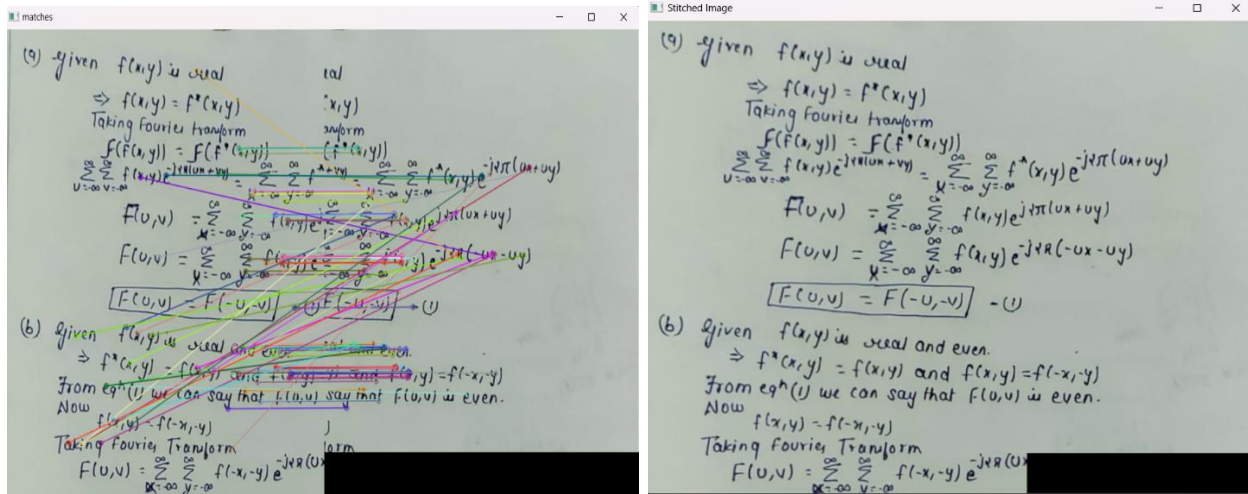 matches
(a) given f(x,y) is real eal
⇒ f(x,y) = f*(x,y) x,y)
Taking Fourier transform nsform
f(f(x,y)) = f(f*(x,y)) (f*(x,y))
F(u,v) = Σ Σ
F(u,v) = Σ Σ
F(u,v) = F(-u,-v) F(-u,-v) -(1)
(b) Given f(x,y) is real and even even.
⇒ f*(x,y) = f(x,y) and =f(-x,-y)
From eqⁿ (1) we can say that F(u,v) say that F(u,v) is even.
Now
f(x,y) = f(-x,-y)
Taking Fourier Transform form
F(u,v) = Σ Σ f(-x,-y) e^-j2π(ux
Stitched Image
(a) given f(x,y) is real
⇒ f(x,y) = f*(x,y)
Taking Fourier transform
f(f(x,y)) = f(f*(x,y))
∞Σu=-∞ ∞Σv=-∞ f(x,y) e^-j2π(ux+vy) = ∞Σx=-∞ ∞Σy=-∞ f*(x,y) e^-j2π(ux+uy)
F(u,v) = ∞Σx=-∞ ∞Σy=-∞ f(x,y) e^j2π(ux+uy)
F(u,v) = ∞Σx=-∞ ∞Σy=-∞ f(x,y) e^-j2π(-ux-uy)
F(u,v) = F(-u,-v) -(1)
(b) Given f(x,y) is real and even.
⇒ f*(x,y) = f(x,y) and f(x,y) =f(-x,-y)
From eqⁿ (1) we can say that F(u,v) is even.
Now
f(x,y) = f(-x,-y)
Taking Fourier Transform
F(u,v) = ∞Σx=-∞ ∞Σy=-∞ f(-x,-y) e^-j2π(ux